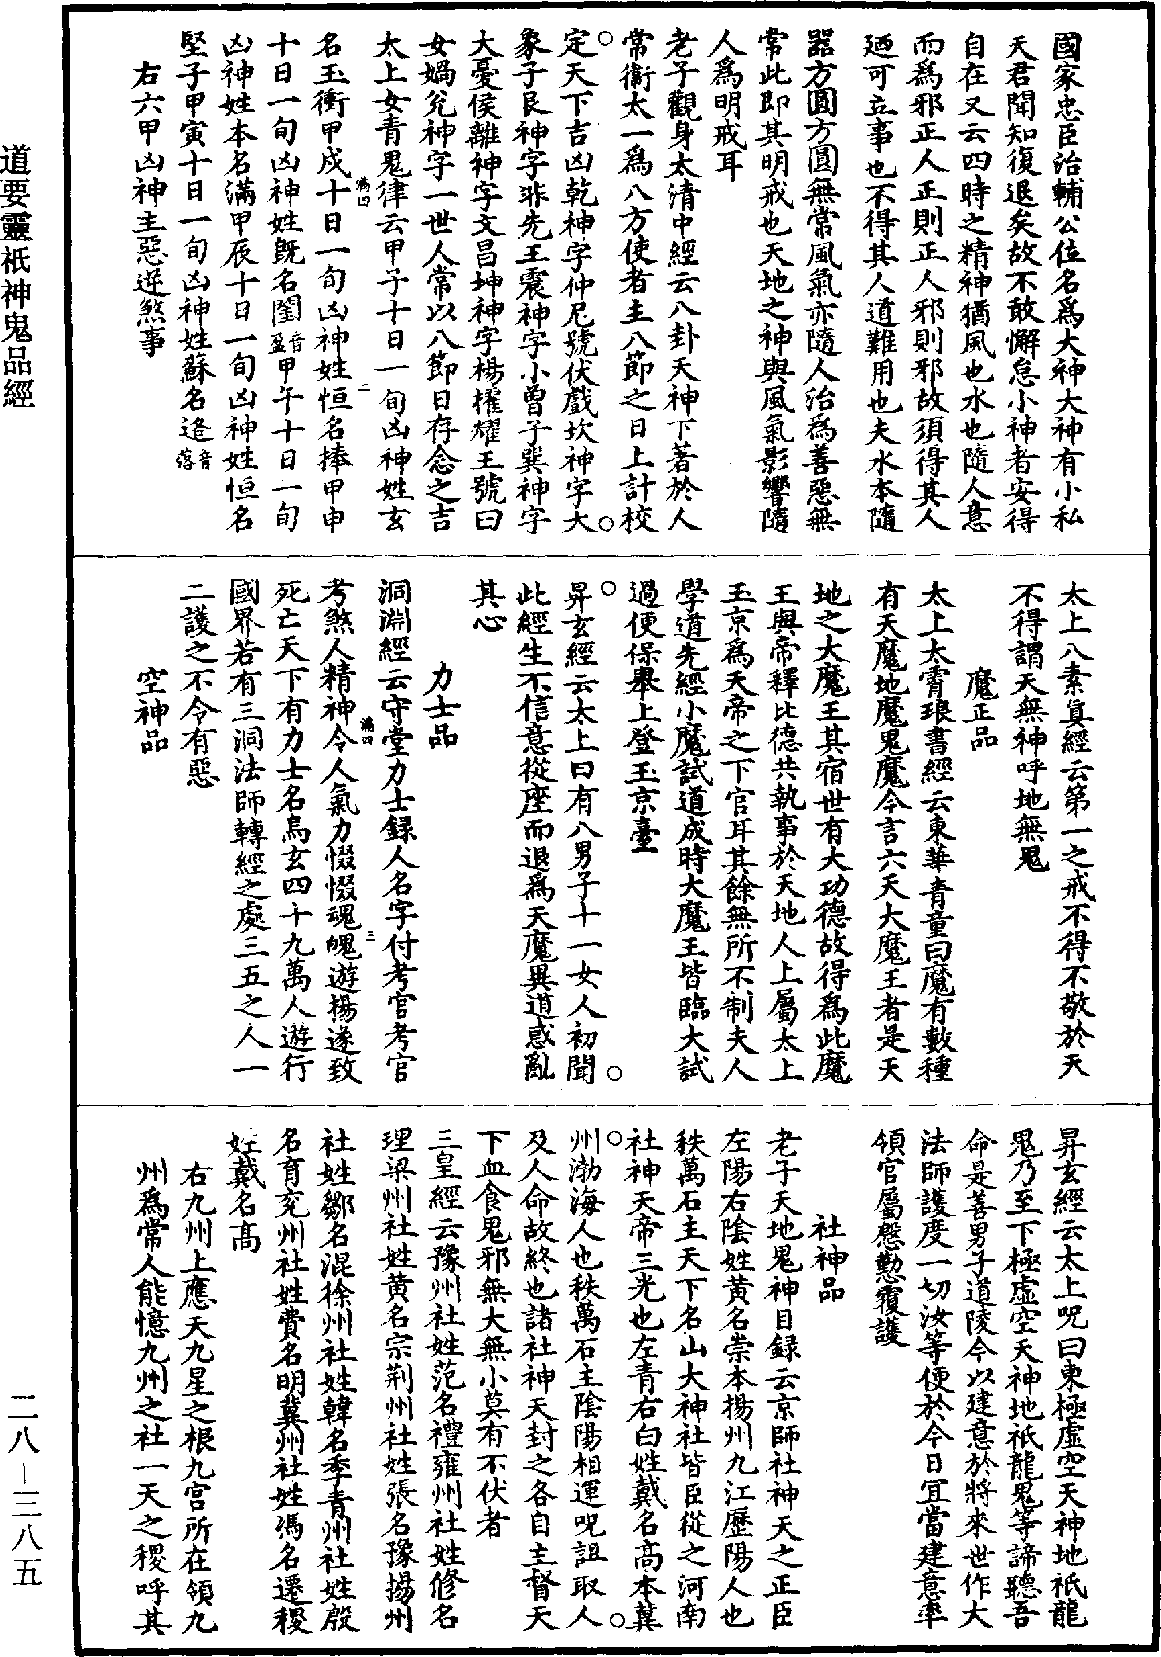 國家忠臣治輔公位名爲大神大神有小私
天君聞知復退矣故不敢懈怠小神者安得
自在又云四時之精神猶風也水也隨人意
而爲邪正人正則正人邪則邪故須得其人
廼可立事也不得其人道難用也夫水本隨
器方圓方圓無常風氣亦隨人治爲善惡無
常此即其明戒也天地之神與風氣影響隨
人爲明戒耳
老子觀身太清中經云八卦天神下著於人
常衛太一爲八方使者主八節之日上計校
定天下吉凶乾神字仲尼號伏戲坎神字大
象子艮神字非先王震神字小曾子巽神字
大憂侯離神字文昌坤神字楊㩴耀王號曰
女媧兊神字一世人常以八節日存念之吉
太上女青鬼律云甲子十日一旬凶神姓玄
滿四
二
名玉衝甲戌十日一旬凶神姓恒名捧甲申
十日一旬凶神姓旣名閏音盈甲午十日一旬
凶神姓本名滿甲辰十日一旬凶神姓恒名
堅子甲寅十日一旬凶神姓蘇名逄音落
右六甲凶神主惡逆煞事
太上八素真經云第一之戒不得不敬於天
不得謂天無神呼地無鬼
魔正品
太上太霄琅書經云東華青童曰魔有數種
有天魔地魔鬼魔今言六天大魔王者是天
地之大魔王其宿世有大功德故得爲此魔
王與帝釋比德共執事於天地人上屬太上
玉京爲天帝之下官耳其餘無所不制夫人
學道先經小魔試道成時大魔王皆臨大試
過便保舉上登玉京臺
昇玄經云太上曰有八男子十一女人初聞
此經生不信意從座而退爲天魔異道惑亂
其心
力士品
洞淵經云守堂力士録人名字付考官考官
滿四
三
考煞人精神令人氣力惙惙魂魄遊揚遂致
死亡天下有力士名烏玄四十九萬人遊行
國界若有三洞法師轉經之處三五之人一
二護之不令有惡
空神品
昇玄經云太上呪曰東極虛空天神地祇龍
鬼乃至下極虛空天神地祇龍鬼等諦聽吾
命是善男子道陵今以建意於將來世作大
法師護度一切汝等便於今日宜當建意率
領官屬慇懃覆護
社神品
老子天地鬼神目録云京師社神天之正臣
左陽右陰姓黃名崇本揚州九江歷陽人也
秩萬石主天下名山大神社皆臣從之河南
社神天帝三光也左青右白姓戴名高本冀
州渤海人也秩萬石主陰陽相運呪詛取人
及人命故終也諸社神天封之各自主督天
下血食鬼邪無大無小莫有不伏者
三皇經云豫州社姓范名禮雍州社姓修名
理梁州社姓黄名宗荆州社姓張名豫揚州
社姓鄒名混徐州社姓韓名季青州社姓殷
名育兖州社姓費名明冀州社姓馮名遷稷
姓戴名高
右九州上應天九星之根九宫所在領九
州爲常人能憶九州之社一天之稷呼其
道要靈祇神鬼品經
二八－三八五